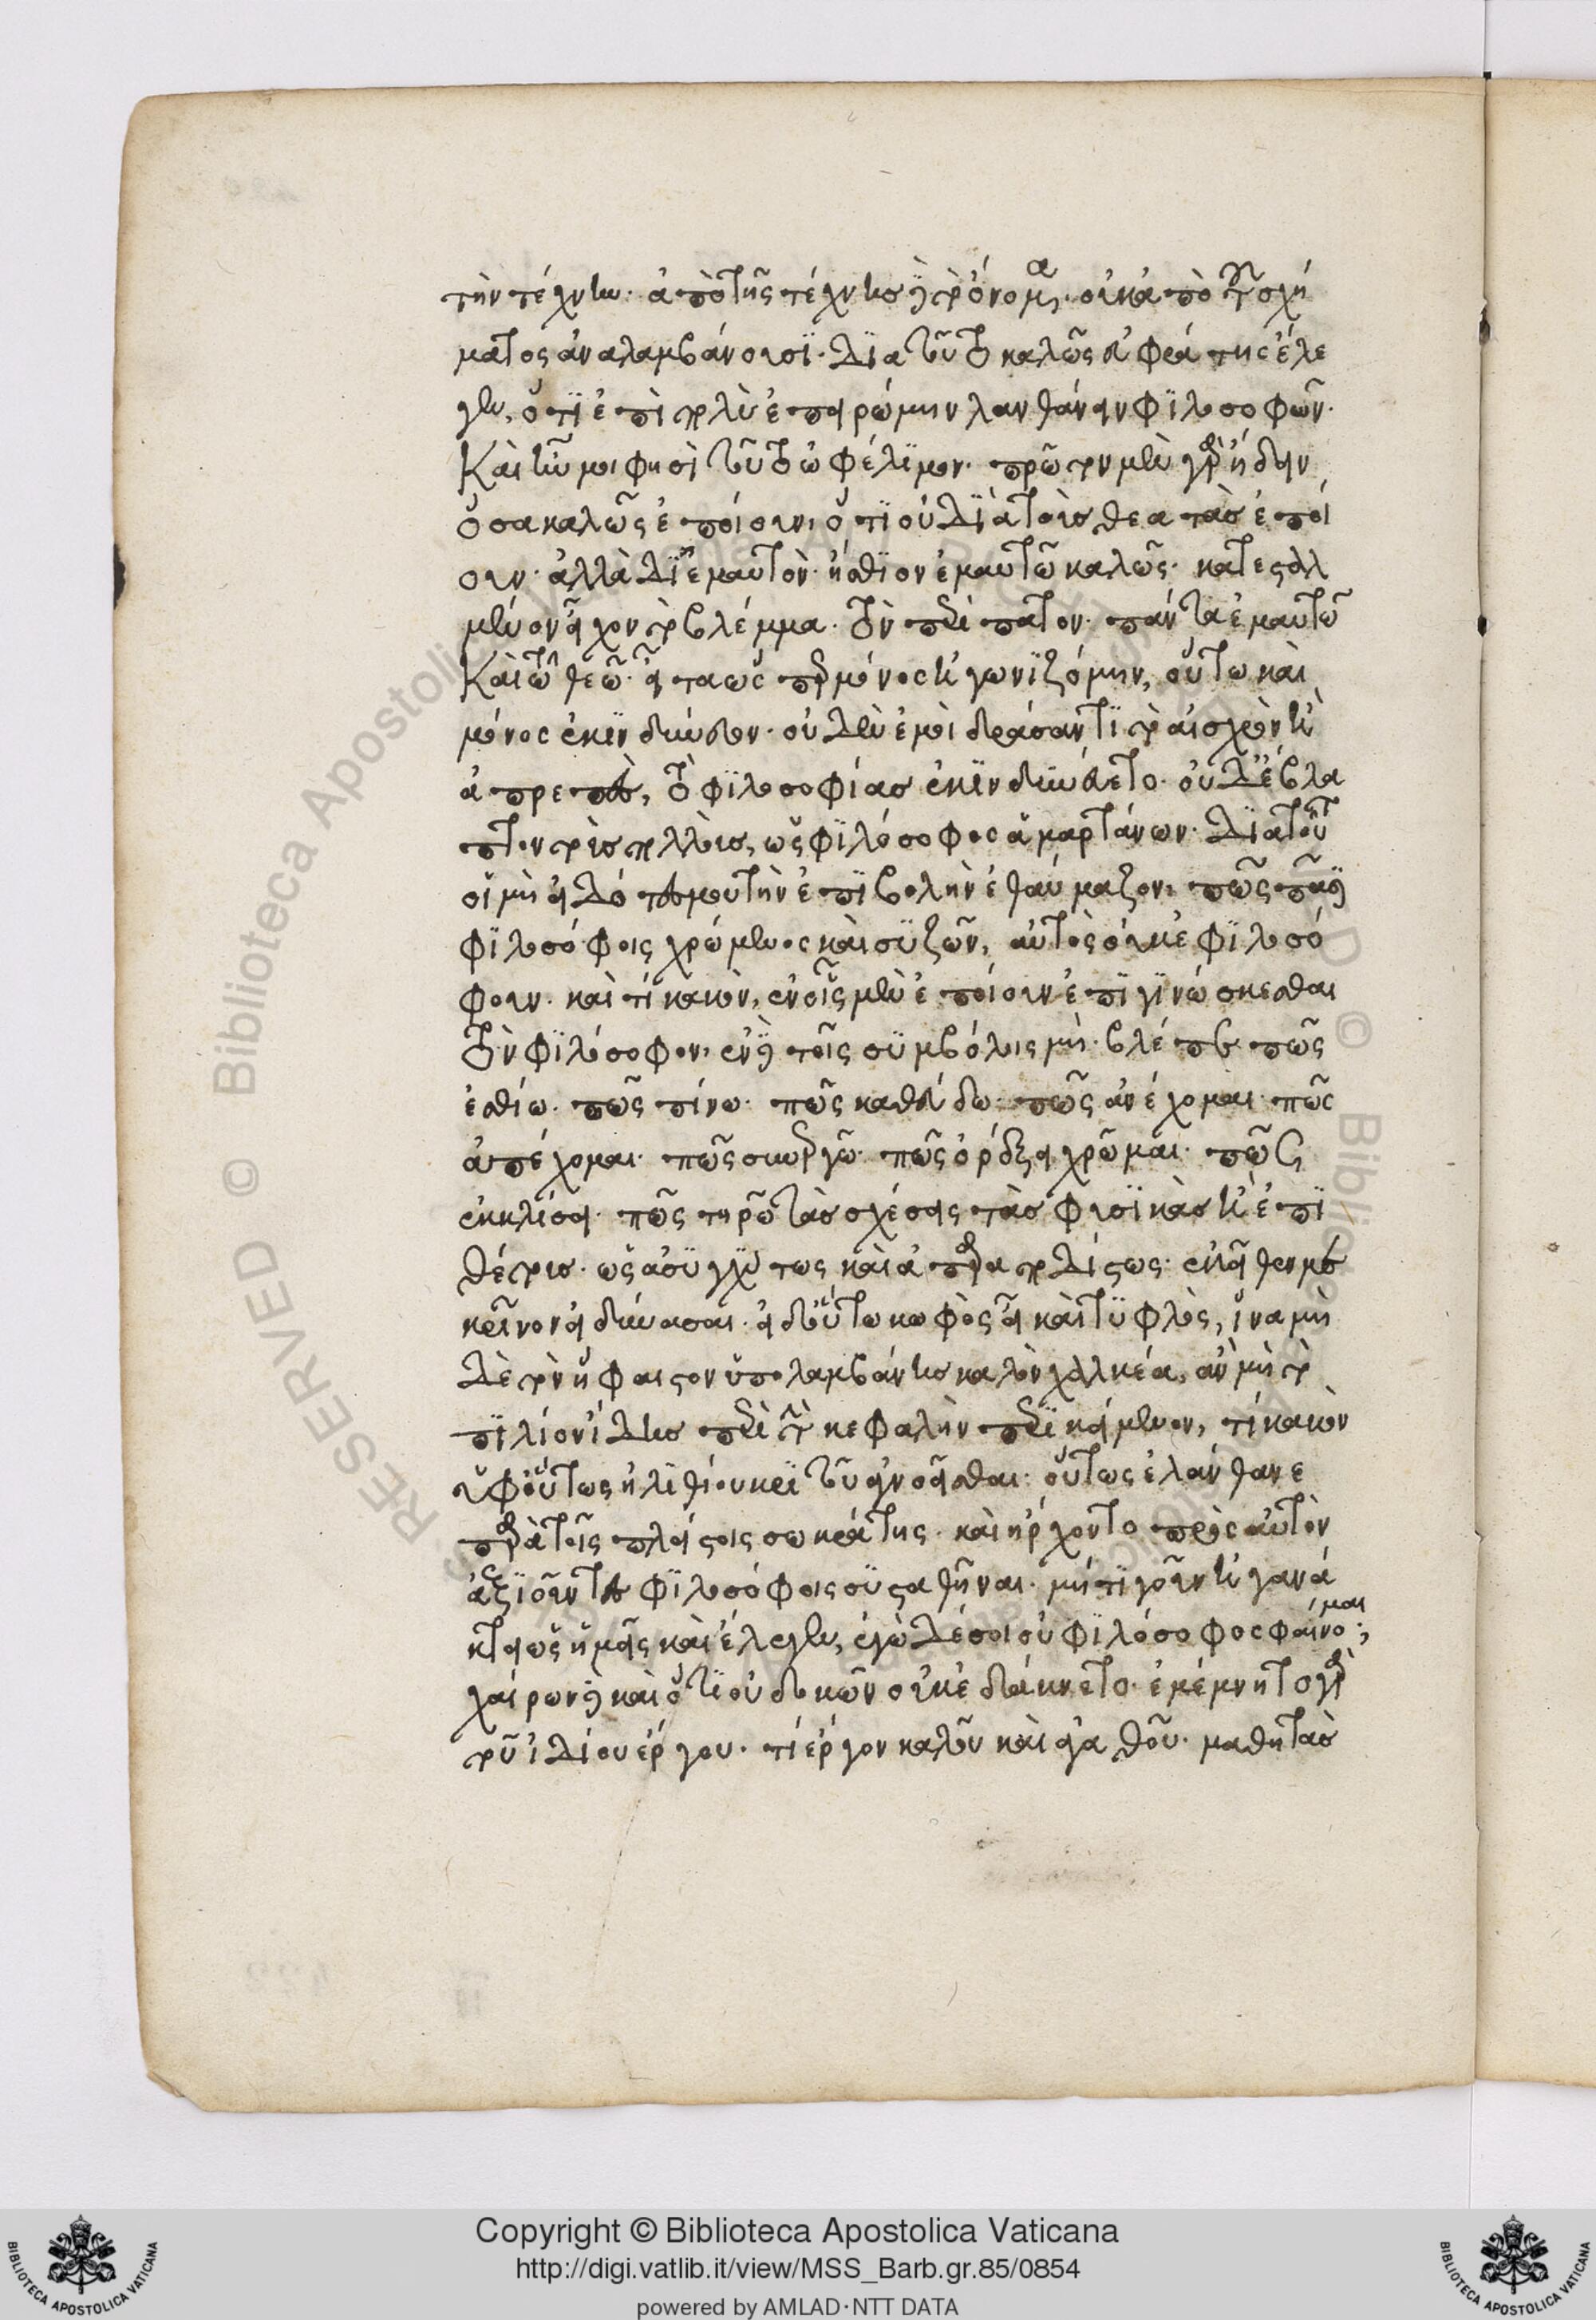 τὴν τέχνην. ἀπὸ τῆς τέχνης καὶ τὸ ὄνομα, οὐκ ἀπὸ τοῦ σχή
ματος ἀναλαμβάνουσι. Διὰ τοῦτο καλῶς εὐφράτης ἔλε
γεν, ὅτι ἐπὶ πολὺ ἐπειρώμην λανθάνειν φιλοσοφῶν.
Καὶ ἦν μοι φησὶ τοῦτο ὠφέλιμον. πρῶτον μὲν γὰρ ᾔδειν
ὅσα καλῶς ἐποίουν, ὅτι οὐ διὰ τοὺς θεατὰς ἐποί
ουν. ἀλλὰ δι' ἐμαυτὸν. ἤσθιον ἐμαυτῶ καλῶς. κατεσταλ
μένον εἶχον τὸ βλέμμα. τὸν περίπατον. πάντα ἐμαυτῶ
Καὶ τῶ θεῶ. εἶτα ὥσπερ μόνος ἠγωνιζόμην, οὕτω καὶ
μόνος ἐκινδύνευον. οὐδὲν ἐμοὶ δράσαντι τὸ αἰσχρὸν ἢ
ἀπρεπὲς, τὸ φιλοσοφίας ἐκινδυνεύετο. οὐδ' ἔβλα
πτον τοὺς πολλοὺς, ὡς φιλόσοφος ἁμαρτάνων. Διὰ τοῦτο
οἱ μὴ εἰδότες μου τὴν ἐπιβολὴν ἐθαύμαζον, πῶς πᾶσι
φιλοσόφοις χρώμενος καὶ συζῶν, αὐτὸς οὐκ ἐφιλοσό
φουν. καὶ τί κακὸν, ἐν οἷς μὲν ἐποίουν ἐπιγινώσκεσθαι
τὸν φιλόσοφον, ἐν δὲ τοῖς συμβόλοις μή. βλέπε πῶς
ἐσθίω. πῶς πίνω. πῶς καθεύδω. πῶς ἀνέχομαι. πῶς
ἀπέχομαι. πῶς συνεργῶ. πῶς ὀρέξει χρῶμαι. πῶς
ἐκκλίσει. πῶς τηρῶ τὰς σχέσεις τὰς φυσικὰς ἢ ἐπι
θέτους. ὡς ἀσυγχύτως καὶ ἀπαραποδίστως. ἐκεῖθεν με
κρῖνον εἰ δύνασαι. εἰ δ' οὕτω κωφὸς εἶ καὶ τυφλὸς, ἵνα μὴ
δὲ τὸν ἥφαιστον ὑπολαμβάνης καλὸν χαλκέα, ἂν μὴ τὸ
πιλίον ἴδης περὶ τὴν κεφαλὴν περικείμενον, τί κακὸν
ὑφ' οὕτως ἠλιθίου κριτοῦ ἀγνοεῖσθαι. οὕτως ἐλάνθανε
παρὰ τοῖς πλείστοις σωκράτης. καὶ ἤρχοντο πρὸς αὐτὸν
ἀξιοῦντες φιλοσόφοις συσταθῆναι. μή τι γοῦν ἠγανά
κτει ὡς ἡμεῖς καὶ ἔλεγεν, ἐγὼ δέ σοι οὐ φιλόσοφος φαίνομαι;
χαίρων καὶ ὅτι οὐ δοκῶν οὐκ ἐδάκνετο. ἐμέμνητο γὰρ
τοῦ ἰδίου ἔργου. τί ἔργον καλοῦ καὶ ἀγαθοῦ. μαθητὰς
Copyright © Biblioteca Apostolica Vaticana
http://digi.vatlib.it/view/MSS_Barb.gr.85/0854
powered by AMLAD·NTT DATA